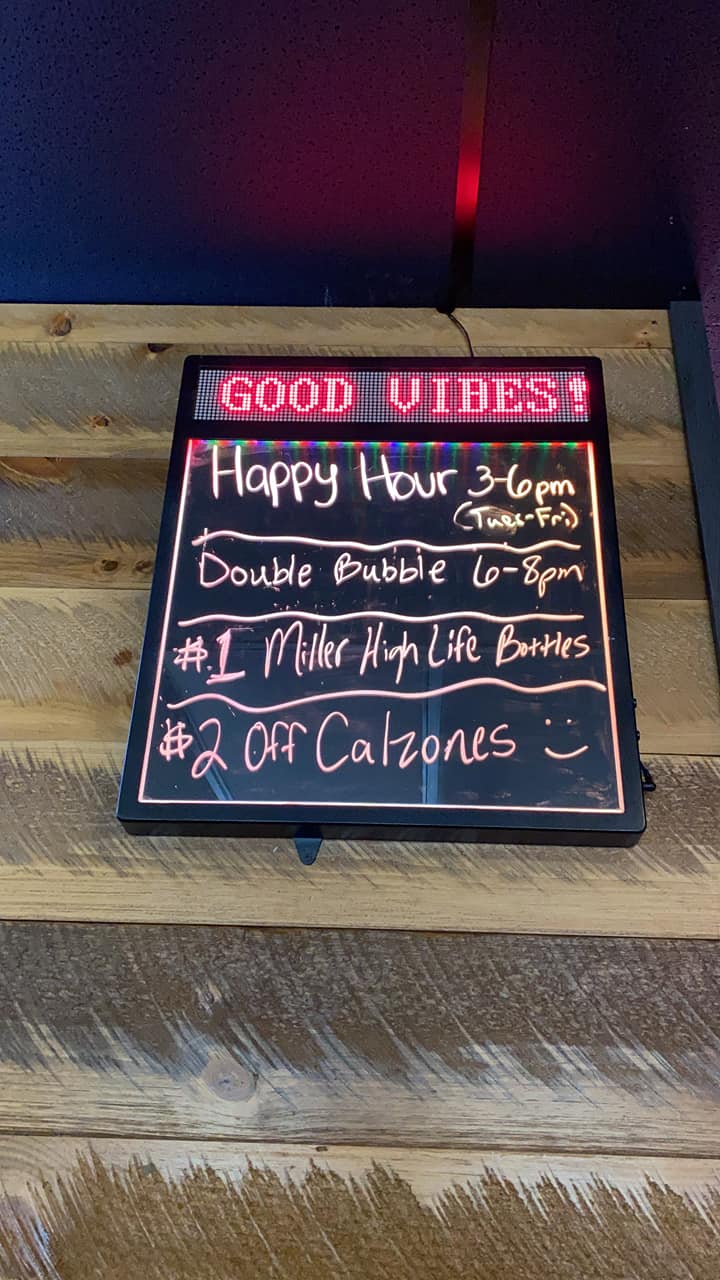 GOOD VIBES!
Happy Hour 3-6pm
(Tues-Fri)
Double Bubble 6-8pm
$1 Miller High Life Bottles
$2 Off Calzones :)